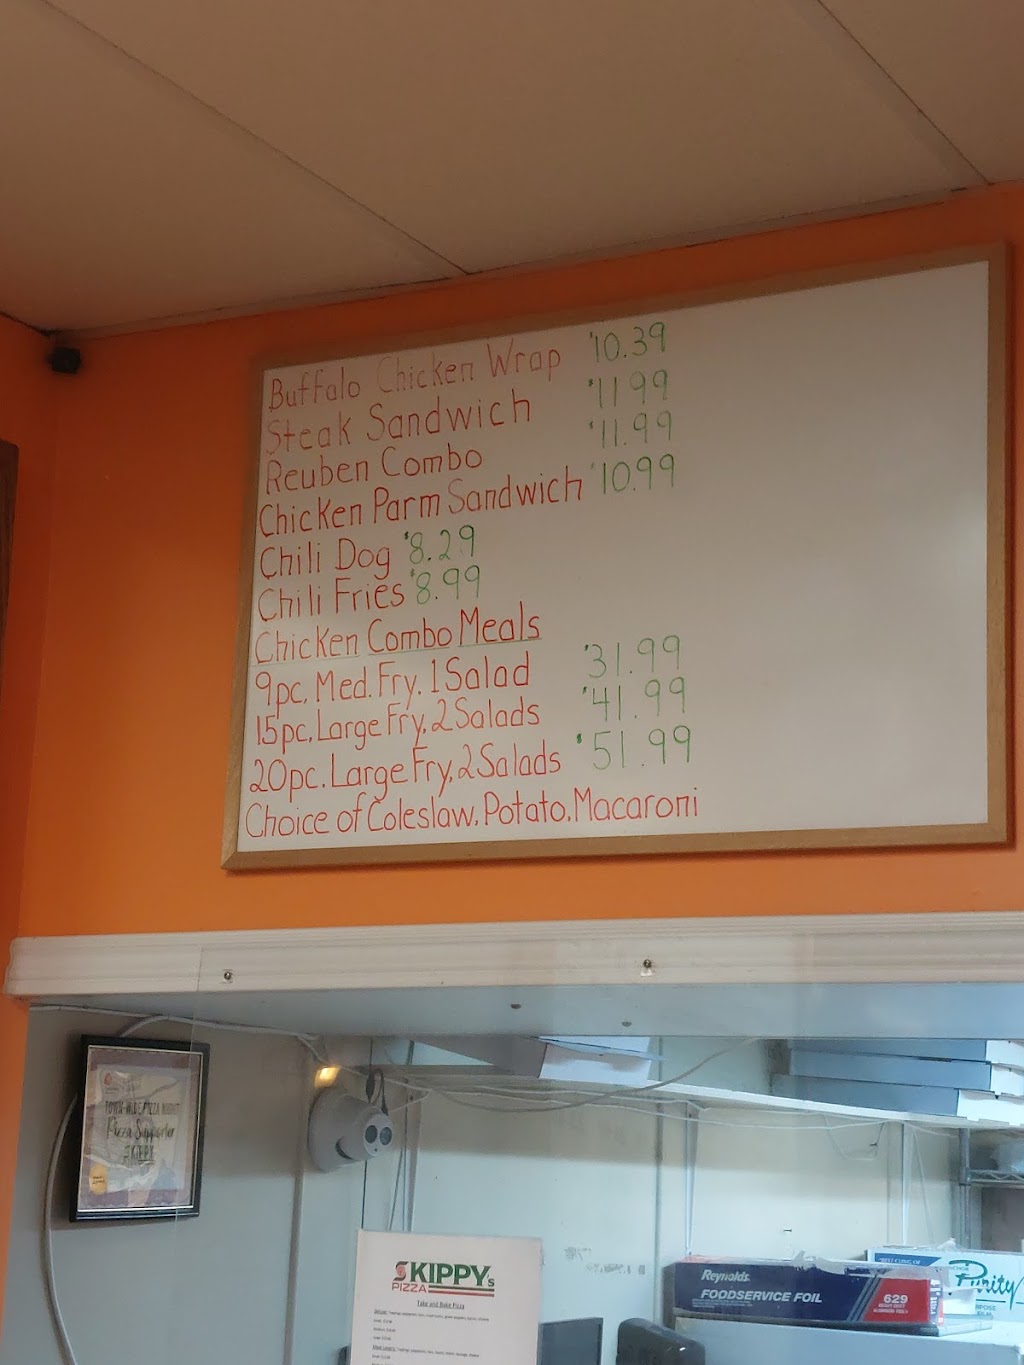 Buffalo Chicken Wrap $10.39
Steak Sandwich $11.99
Reuben Combo $11.99
Chicken Parm Sandwich $10.99
Chili Dog $8.29
Chili Fries $8.99
Chicken Combo Meals
9pc, Med. Fry, 1 Salad $31.99
15pc, Large Fry, 2 Salads $41.99
20pc. Large Fry, 2 Salads $51.99
Choice of Coleslaw, Potato, Macaroni
TOWN-WIDE PIZZA NIGHT
Pizza Supporter
SKIPPY
SKIPPY's
PIZZA
Take and Bake Pizza
Reynolds
FOODSERVICE FOIL
629
Purity